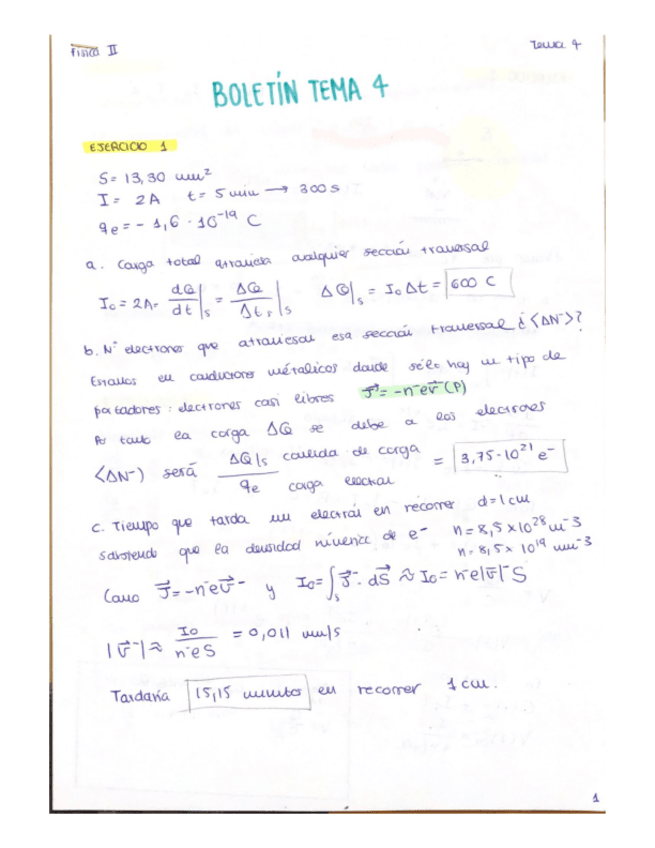 Física II
Tema 4
BOLETÍN TEMA 4
EJERCICIO 1
S = 13,30 mm²
I = 2A t = 5 min → 300 s
qe = - 1,6 · 10⁻¹⁹ C
a. Carga total atraviesa cualquier sección trausversal
I₀ = 2A = dQ/dt|s = ΔQ/Δt|s ΔQ|s = I₀Δt = 600 C
b. Nº electrones que atraviesan esa sección trausversal ¿<ΔN⁻>?
Estamos en conductores metálicos donde sólo hay un tipo de
portadores: electrones casi libres J⃗ = -n⁻ev⃗ (P)
Por tanto la carga ΔQ se debe a los electrones
<ΔN⁻> será ΔQ|s cantidad de carga / qe carga electrón = 3,75·10²¹ e⁻
c. Tiempo que tarda un electrón en recorrer d = 1 cm
sabiendo que la densidad númerica de e⁻ n = 8,5 x 10²⁸ m⁻³
n = 8,5 x 10¹⁹ mm⁻³
Como J⃗ = -n⁻ev⃗⁻ y I₀ = ∫s J⃗⁻ · dS⃗ ≈ I₀ = n⁻e|v⃗|⁻ S
|v⃗⁻| ≈ I₀/n⁻eS = 0,011 mm/s
Tardaría 15,15 minutos en recorrer 1 cm.
1